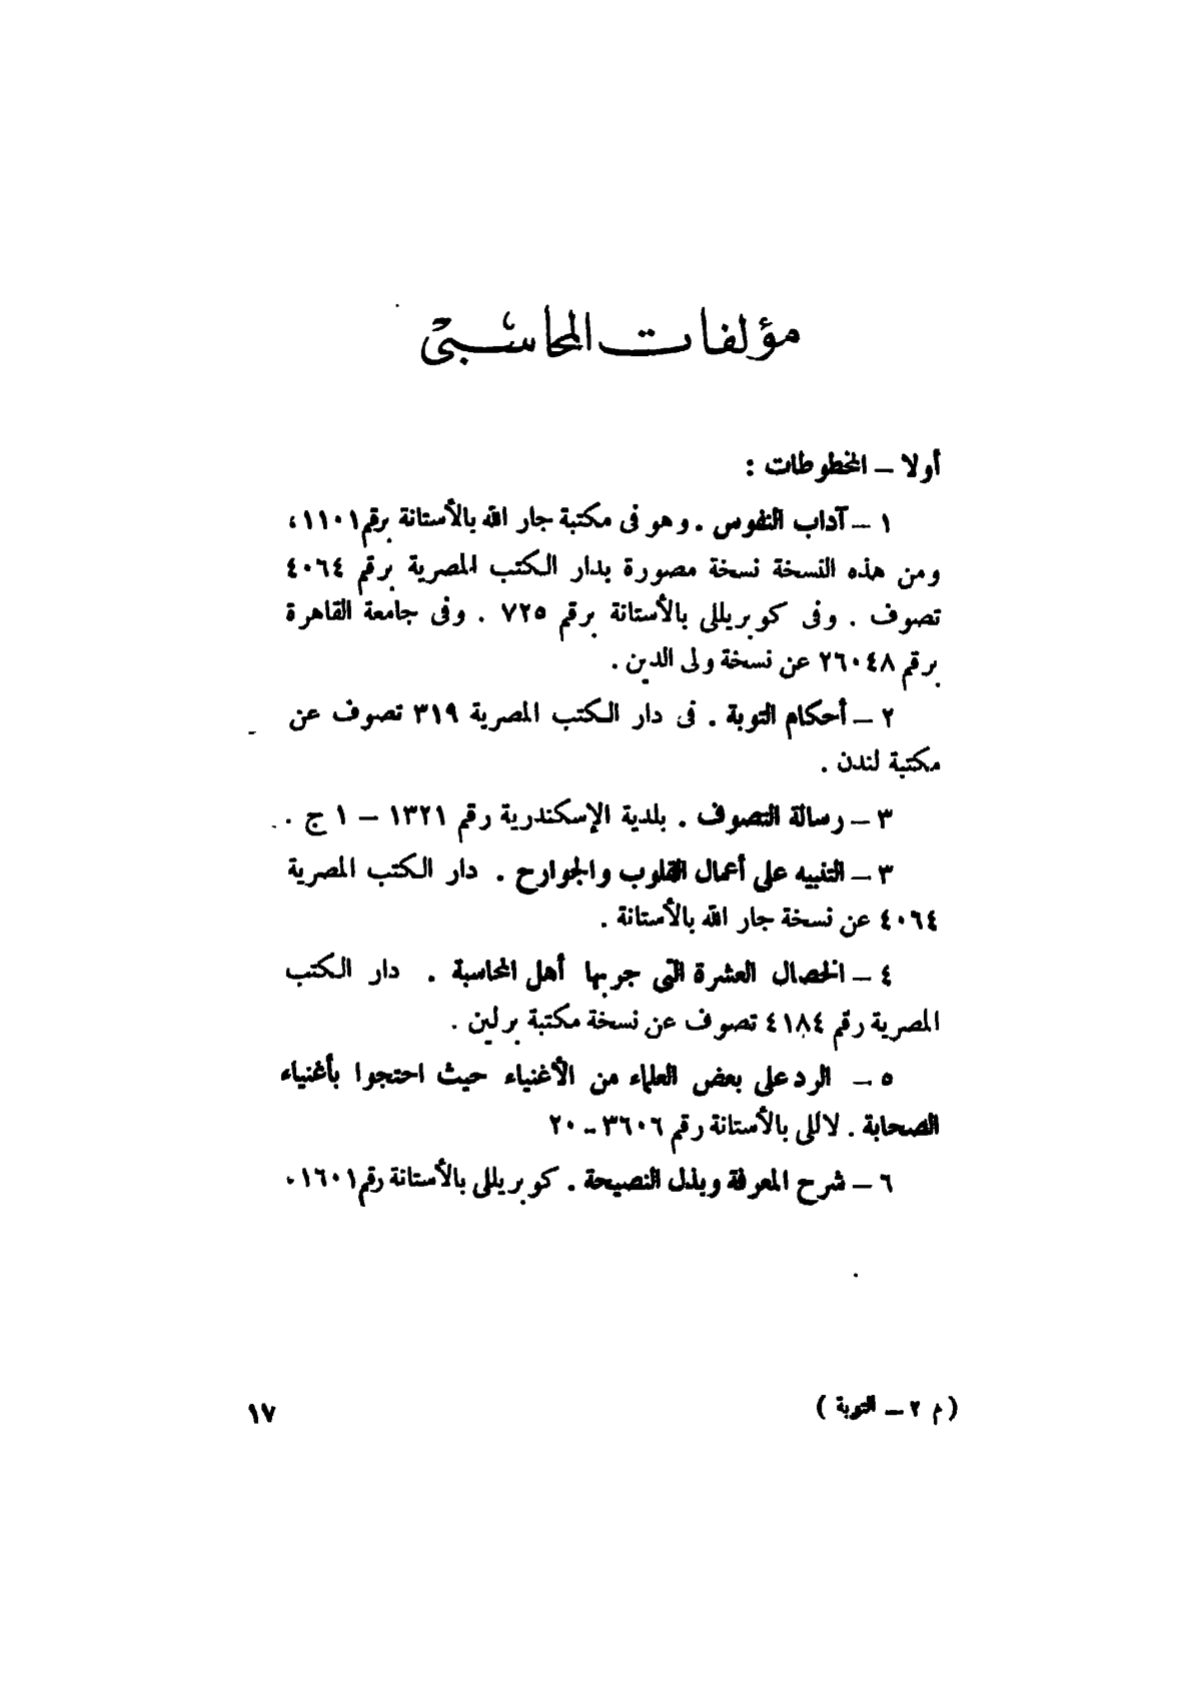 مؤلفات المحاسبى
أولا – المخطوطات :
١ – آداب النفوس . وهو فى مكتبة جار الله بالأستانة برقم ١١٠١ ،
ومن هذه النسخة نسخة مصورة بدار الكتب المصرية برقم ٤٠٦٤
تصوف . وفى كوبريللى بالأستانة برقم ٧٢٥ . وفى جامعة القاهرة
برقم ٢٦٠٤٨ عن نسخة ولى الدين .
٢ – أحكام التوبة . فى دار الكتب المصرية ٣١٩ تصوف عن
مكتبة لندن .
٣ – رسالة التصوف . بلدية الإسكندرية رقم ١٣٢١ – ١ ج .
٣ – التنبيه على أعمال القلوب والجوارح . دار الكتب المصرية
٤٠٦٤ عن نسخة جار الله بالأستانة .
٤ – الخصال العشرة التى جربها أهل المحاسبة . دار الكتب
المصرية رقم ٤١٨٤ تصوف عن نسخة مكتبة برلين .
٥ – الرد على بعض العلماء من الأغنياء حيث احتجوا بأغنياء
الصحابة . لاللى بالأستانة رقم ٣٦٠٦ – ٢٠
٦ – شرح المعرفة وبذل النصيحة . كوبريللى بالأستانة رقم ١٦٠١ .
( م ٢ – التوبة )
١٧